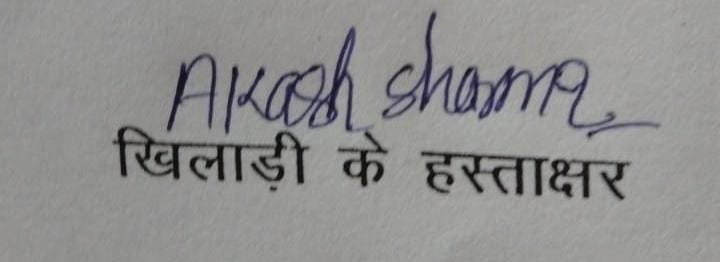 Akash Sharma
खिलाड़ी के हस्ताक्षर